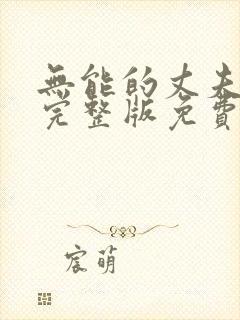 無能的丈夫
完整版免費
宸萌